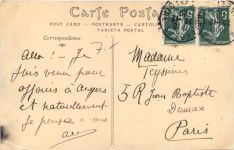 Carte Postale
POST CARD - POSTKARTE - CARTOLINA
TARJETA POSTAL
Correspondance
Allo! - Je
suis venu pour
affaires à Angers
et naturellement
je pense à vous
Madame
Teysseire
5 R Jean Baptiste
Dumas
Paris